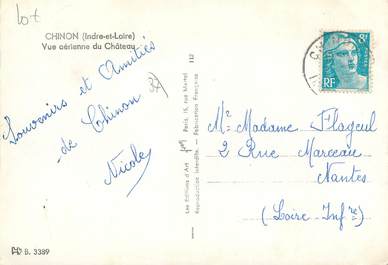 lot
CHINON (Indre-et-Loire)
Vue aérienne du Château
Souvenirs et Amitiés
de Chinon
Nicole
B. 3389
Les Editions d'Art
Paris, 15, rue Martel
112
Reproduction Interdite. - Fabrication Française
8F
RF
Mr Madame Flageul
2 Rue Marceau
Nantes
(Loire Infre)